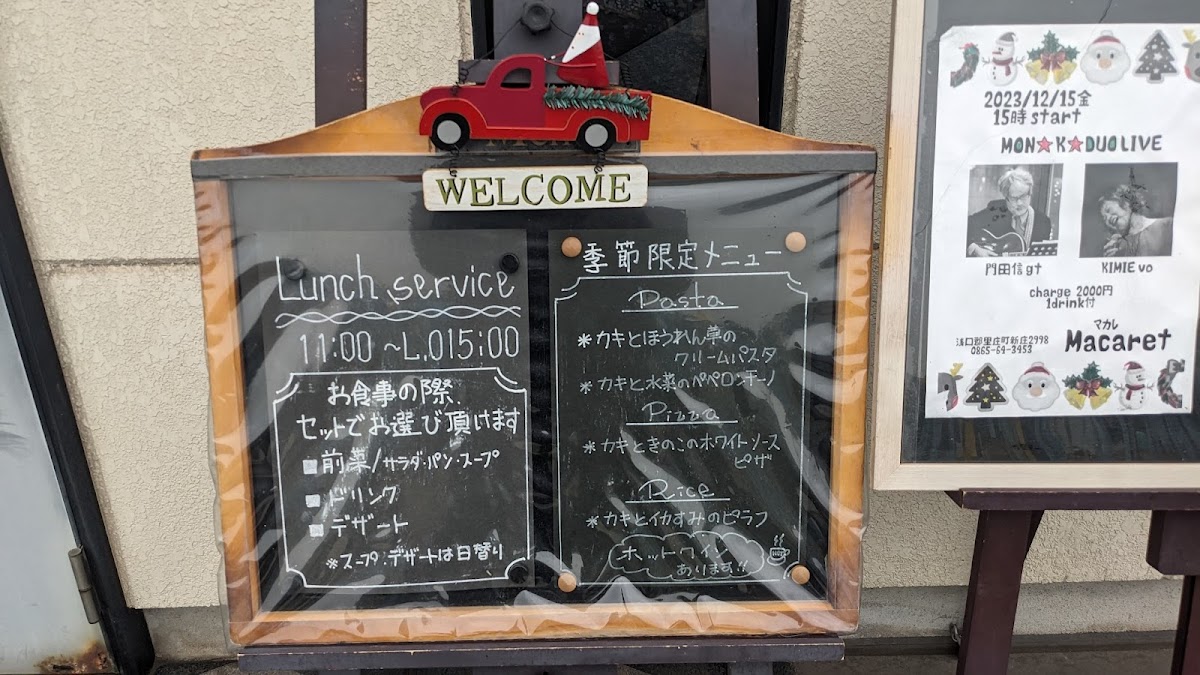 WELCOME
Lunch service
11:00 ~L.O15:00
お食事の際、
セットでお選び頂けます
前菜/サラダ・パン・スープ
ドリンク
デザート
*スープ・デザートは日替り
季節限定メニュー
Pasta
*カキとほうれん草の
クリームパスタ
*カキと水菜のペペロンチーノ
Pizza
*カキときのこのホワイトソース
ピザ
Rice
*カキとイカすみのピラフ
ホットワイン
あります!!
2023/12/15金
15時start
MON★K★DUO LIVE
門田信gt
KIMIE vo
charge 2000円
1drink付
マカレ
Macaret
浅口郡里庄町新庄2998
0865-64-3453